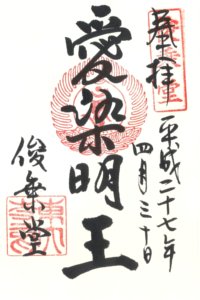 奉拝
平成二十七年
四月三十日
愛染明王
俊乗堂